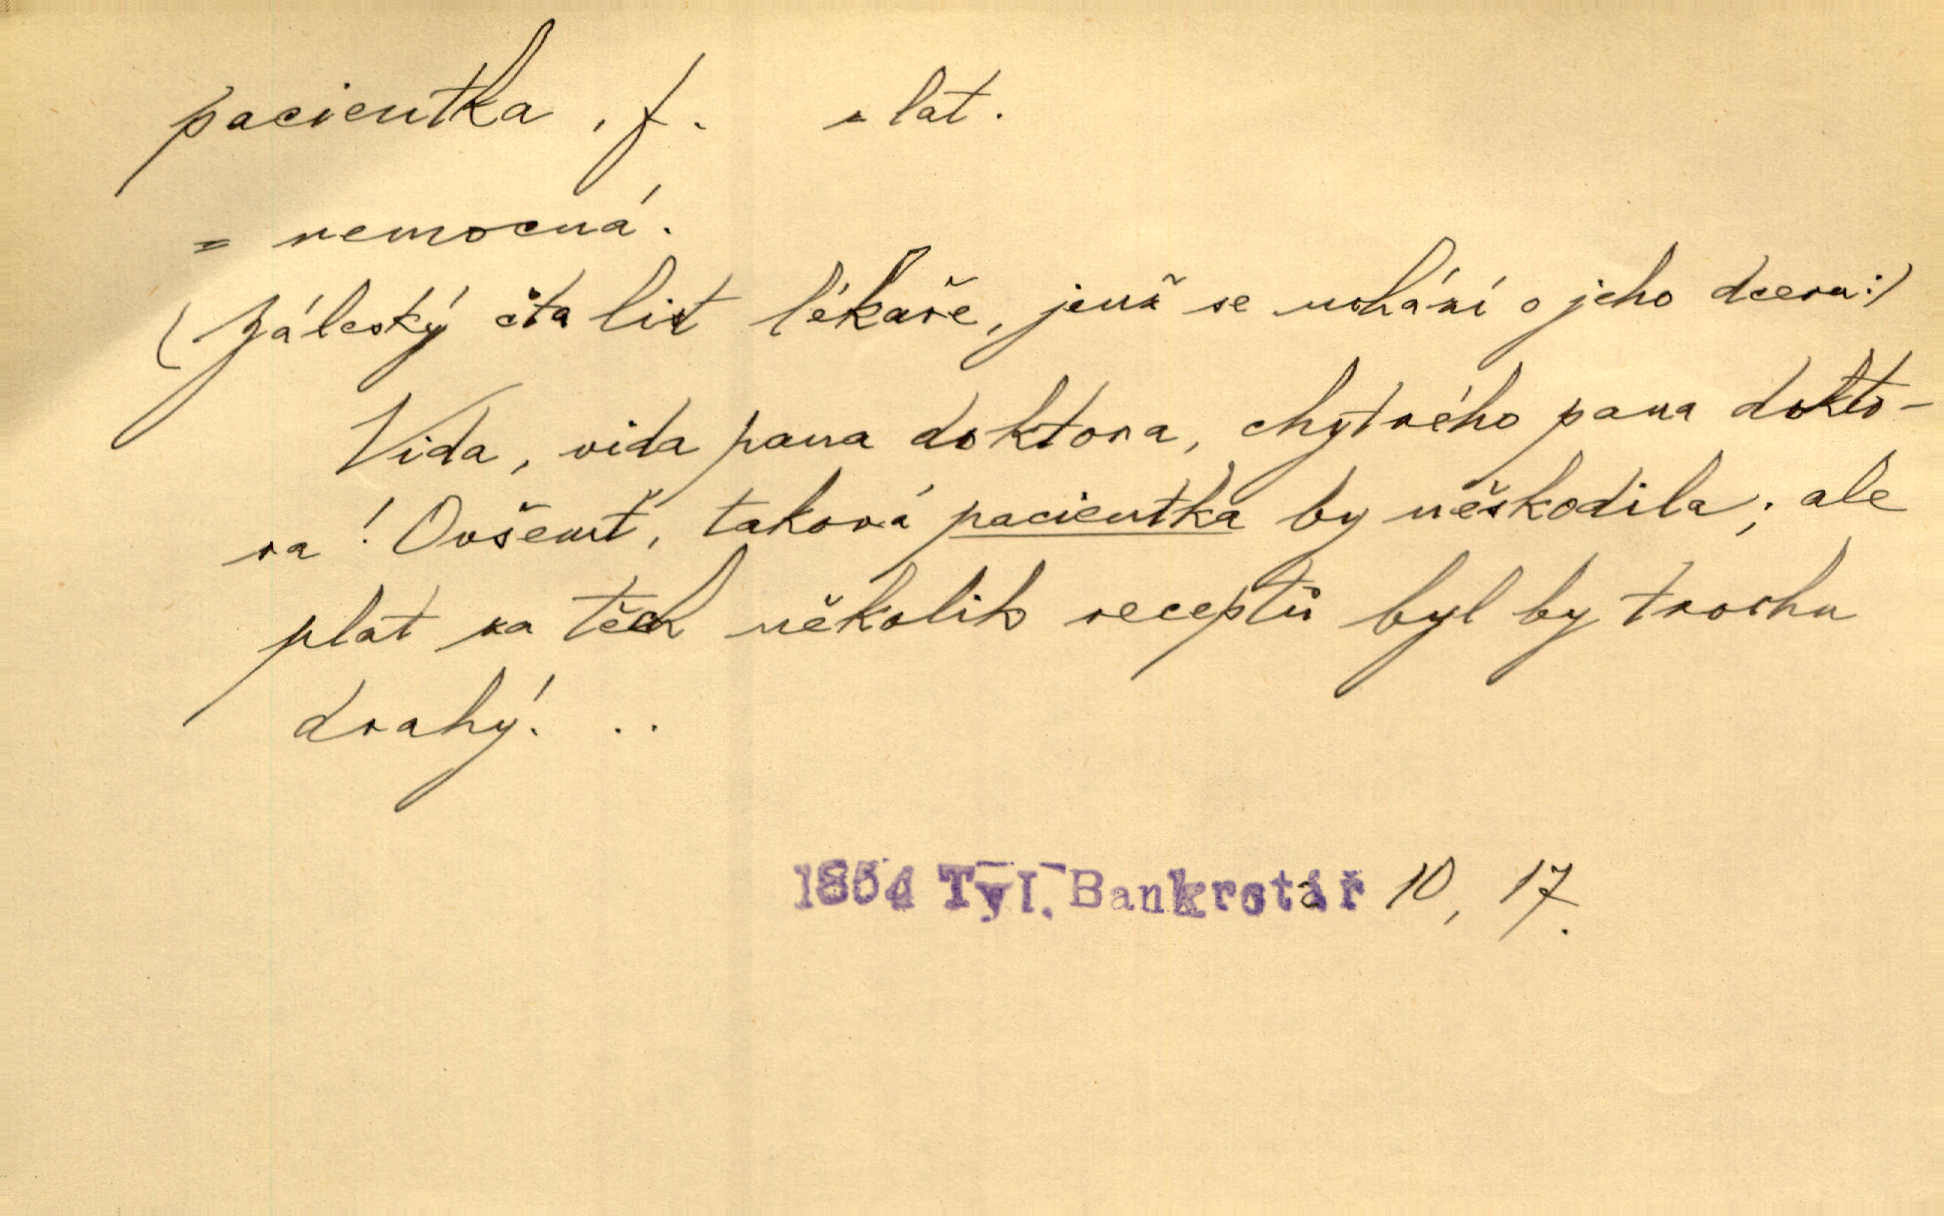 pacientka, f. z lat.
= nemocná.
(Záleský čta list lékaře, jenž se uchází o jeho dceru:)
Vida, vida pana doktora, chytrého pana dokto-
ra! Ovšemť, taková pacientka by neškodila; ale
plat za těch několik receptů byl by trochu
drahý! ..
1854 Tyl. Bankrotář 10, 17.